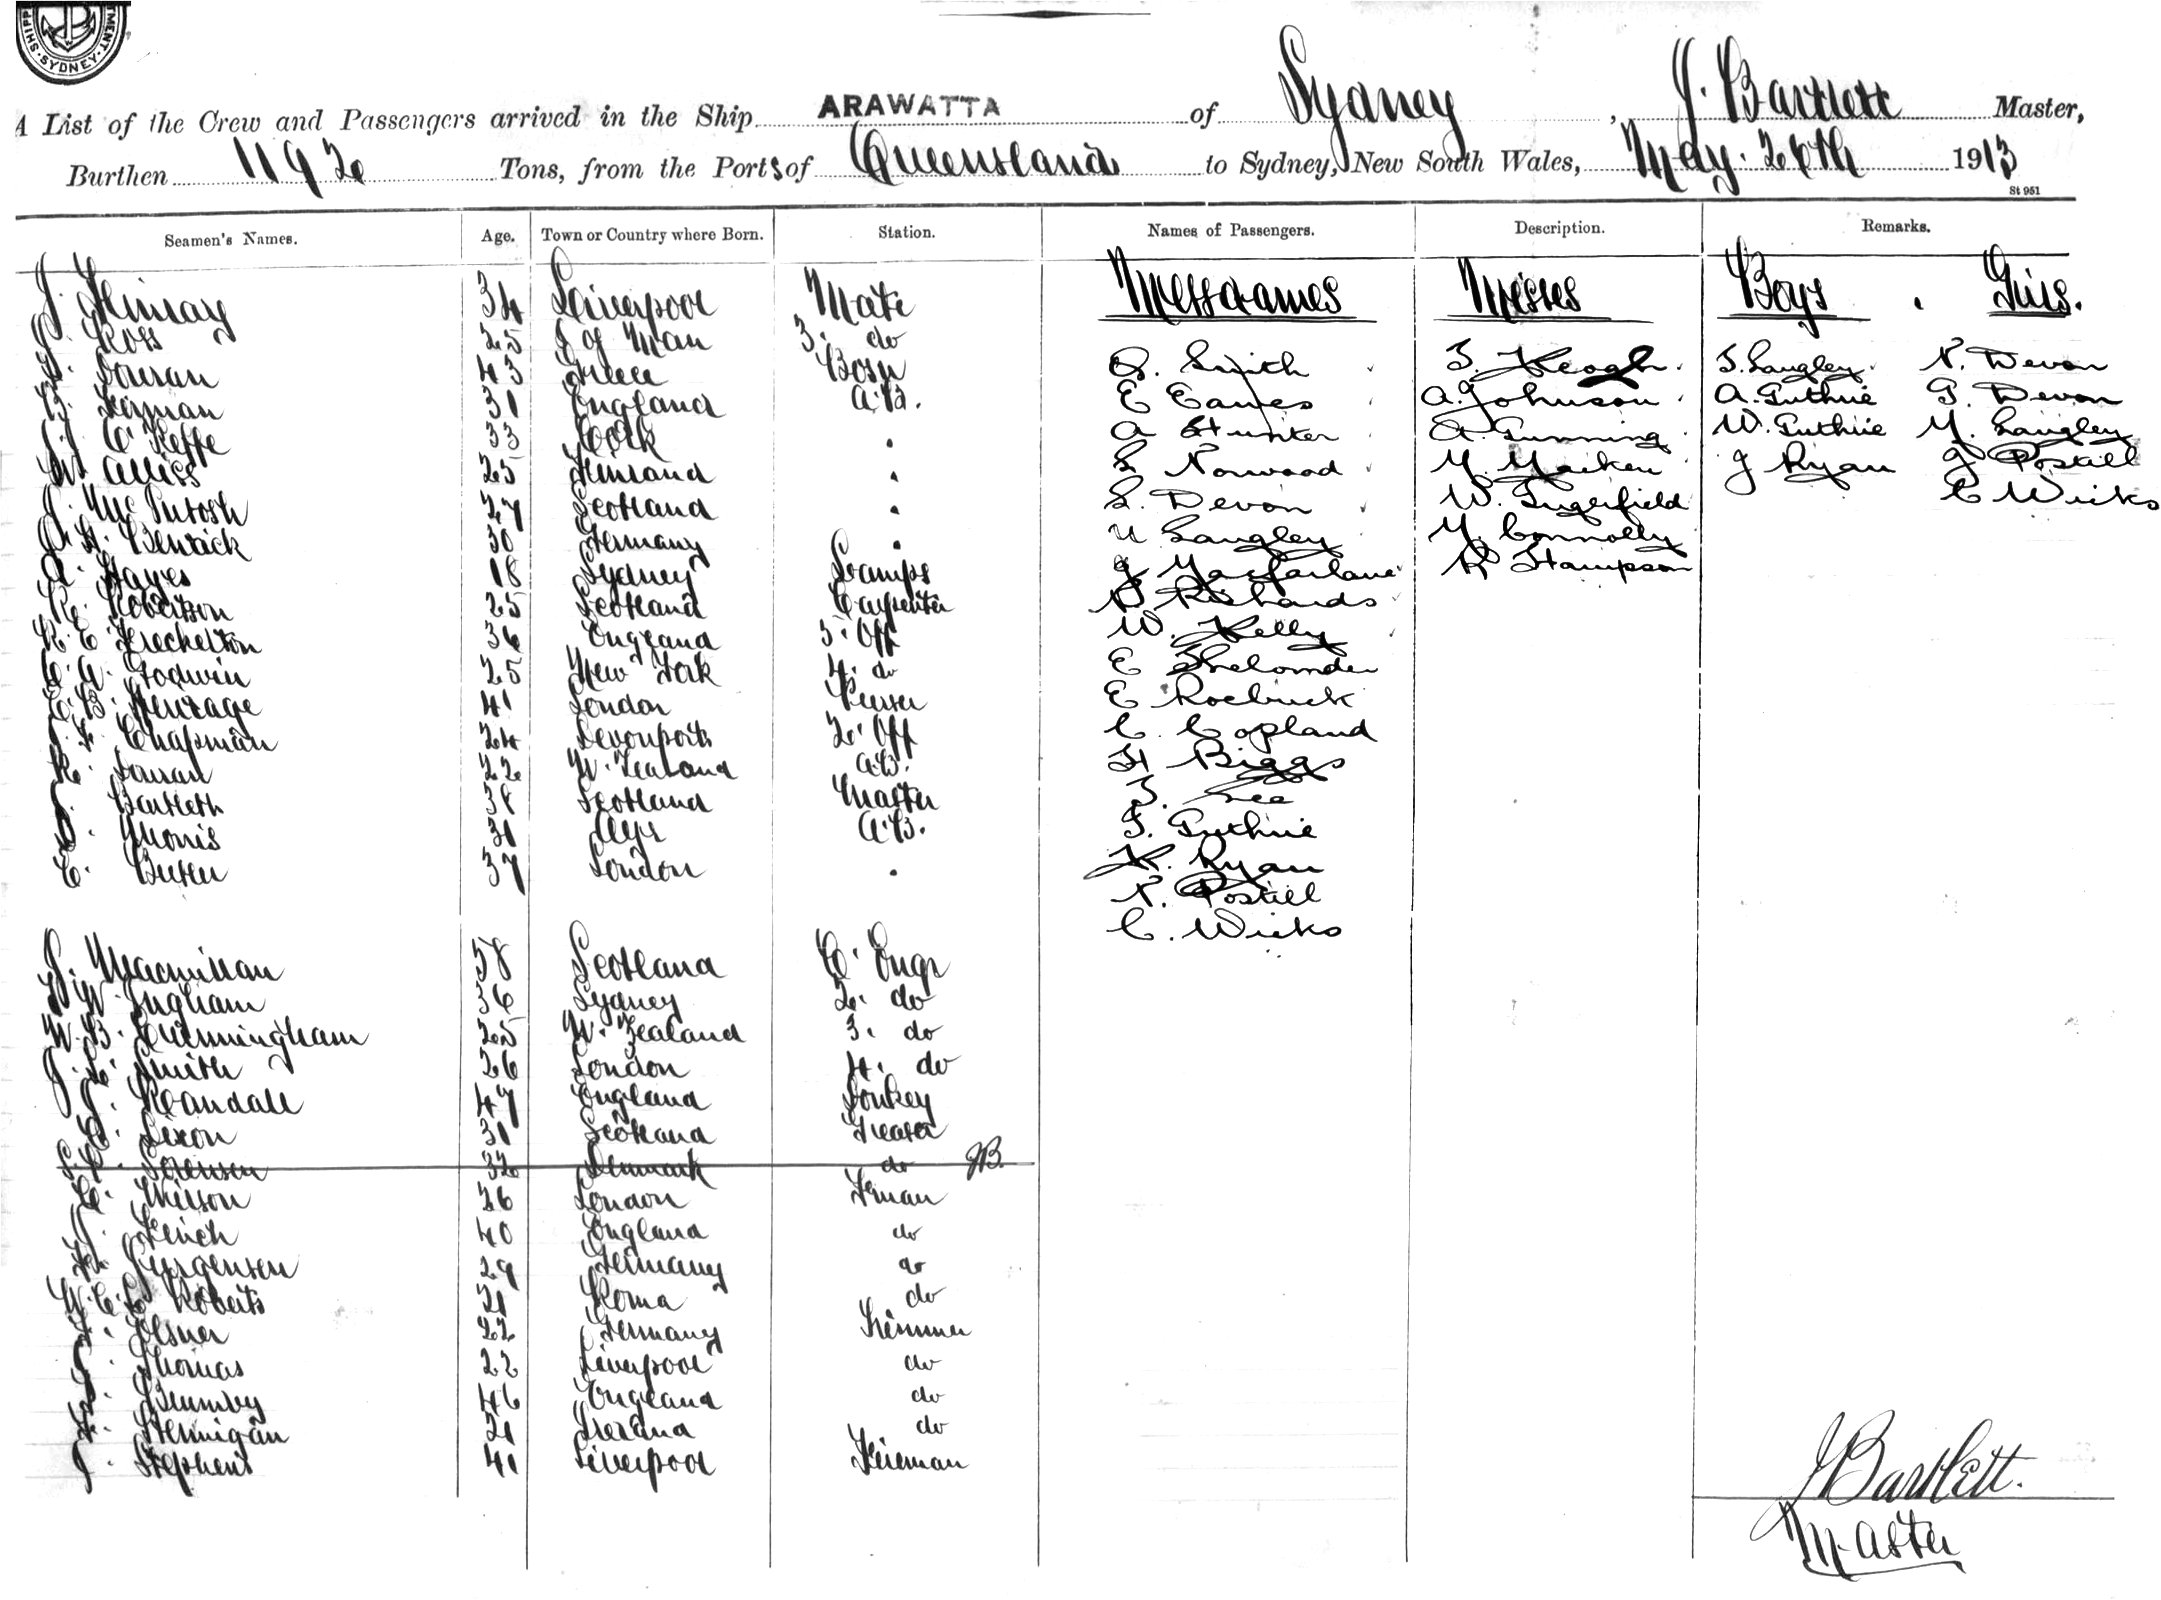 SHIPP MENT. SYDNEY.
A List of the Crew and Passengers arrived in the Ship ARAWATTA of Sydney, J. Bartlett Master,
Burthen 1192 Tons, from the Ports of Queensland to Sydney, New South Wales, May. 26th 1913
St 951
Seamen's Names. Age. Town or Country where Born. Station. Names of Passengers. Description. Remarks.
Messdames Misses Boys. Girls.
J. 34 Liverpool Mate
Ross 25 I of Man 3. do
43 Greece Bosn
31 England A.B.
J. O'Keffe 33 Cork "
W. Alliss 25 Finland "
J. McIntosh 27 Scotland "
30 Germany "
A. Hayes 18 Sydney Lamps
R. Robertson 25 Scotland Carpenter
R. E. 36 England 5. Off
C. A. Godwin 25 New York 4. do
C. B. Heritage 41 London Purser
F. Chapman 24 Devonport 2. Off
R. 22 N. Zealand A.B.
J. Bartlett 58 Scotland Master
Morris 31 Ayr A.B.
C. 37 London "
J. Macmillan 58 Scotland C. Engr
W. Ingham 36 Sydney 2. do
W. B. Cunningham 25 N. Zealand 3. do
J. L. Smith 26 London 4. do
J. Randall 47 England Donkey
C. Dixon 31 Scotland Greaser
Sorensen 32 Denmark do JB.
C. Wilson 26 London Fman
J. Finch 40 England do
H. Jurgensen 29 Germany do
W. C. L. Roberts 21 Roma do
21 Germany Trimmer
J. Thomas 22 Liverpool do
J. Brumby 46 England do
Hennigan 21 Ireland do
J. Stephens 41 Liverpool Fireman
Smith
E Eames
A Hunter
L Norwood
S. Devon
Langley
J Macfarlane
Richards
W. Kelly
E
E Roebuck
C. Copland
H Biggs
Lee
F. Guthrie
K. Ryan
N. Postill
C. Wicks
Keogh
A. Johnson
A. Gunning
M. Macken
W. Ingerfield
M. Connolly
R Hampson
Langley
A. Guthrie
W. Guthrie
J Ryan
N. Devon
G. Devon
M. Langley
J Postill
C Wicks
J Bartlett.
Master